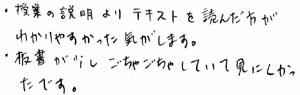 ・授業の説明よりテキストを読んだ方が
わかりやすかった気がします。
・板書が少しごちゃごちゃしていて見にくかっ
たです。